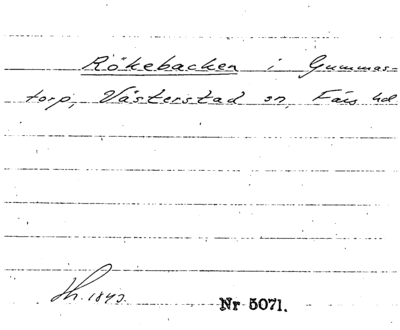 Rökebacken i Gummas-
torp, Västerstad sn, Färs hd
Th. 1843.
Nr 5071.